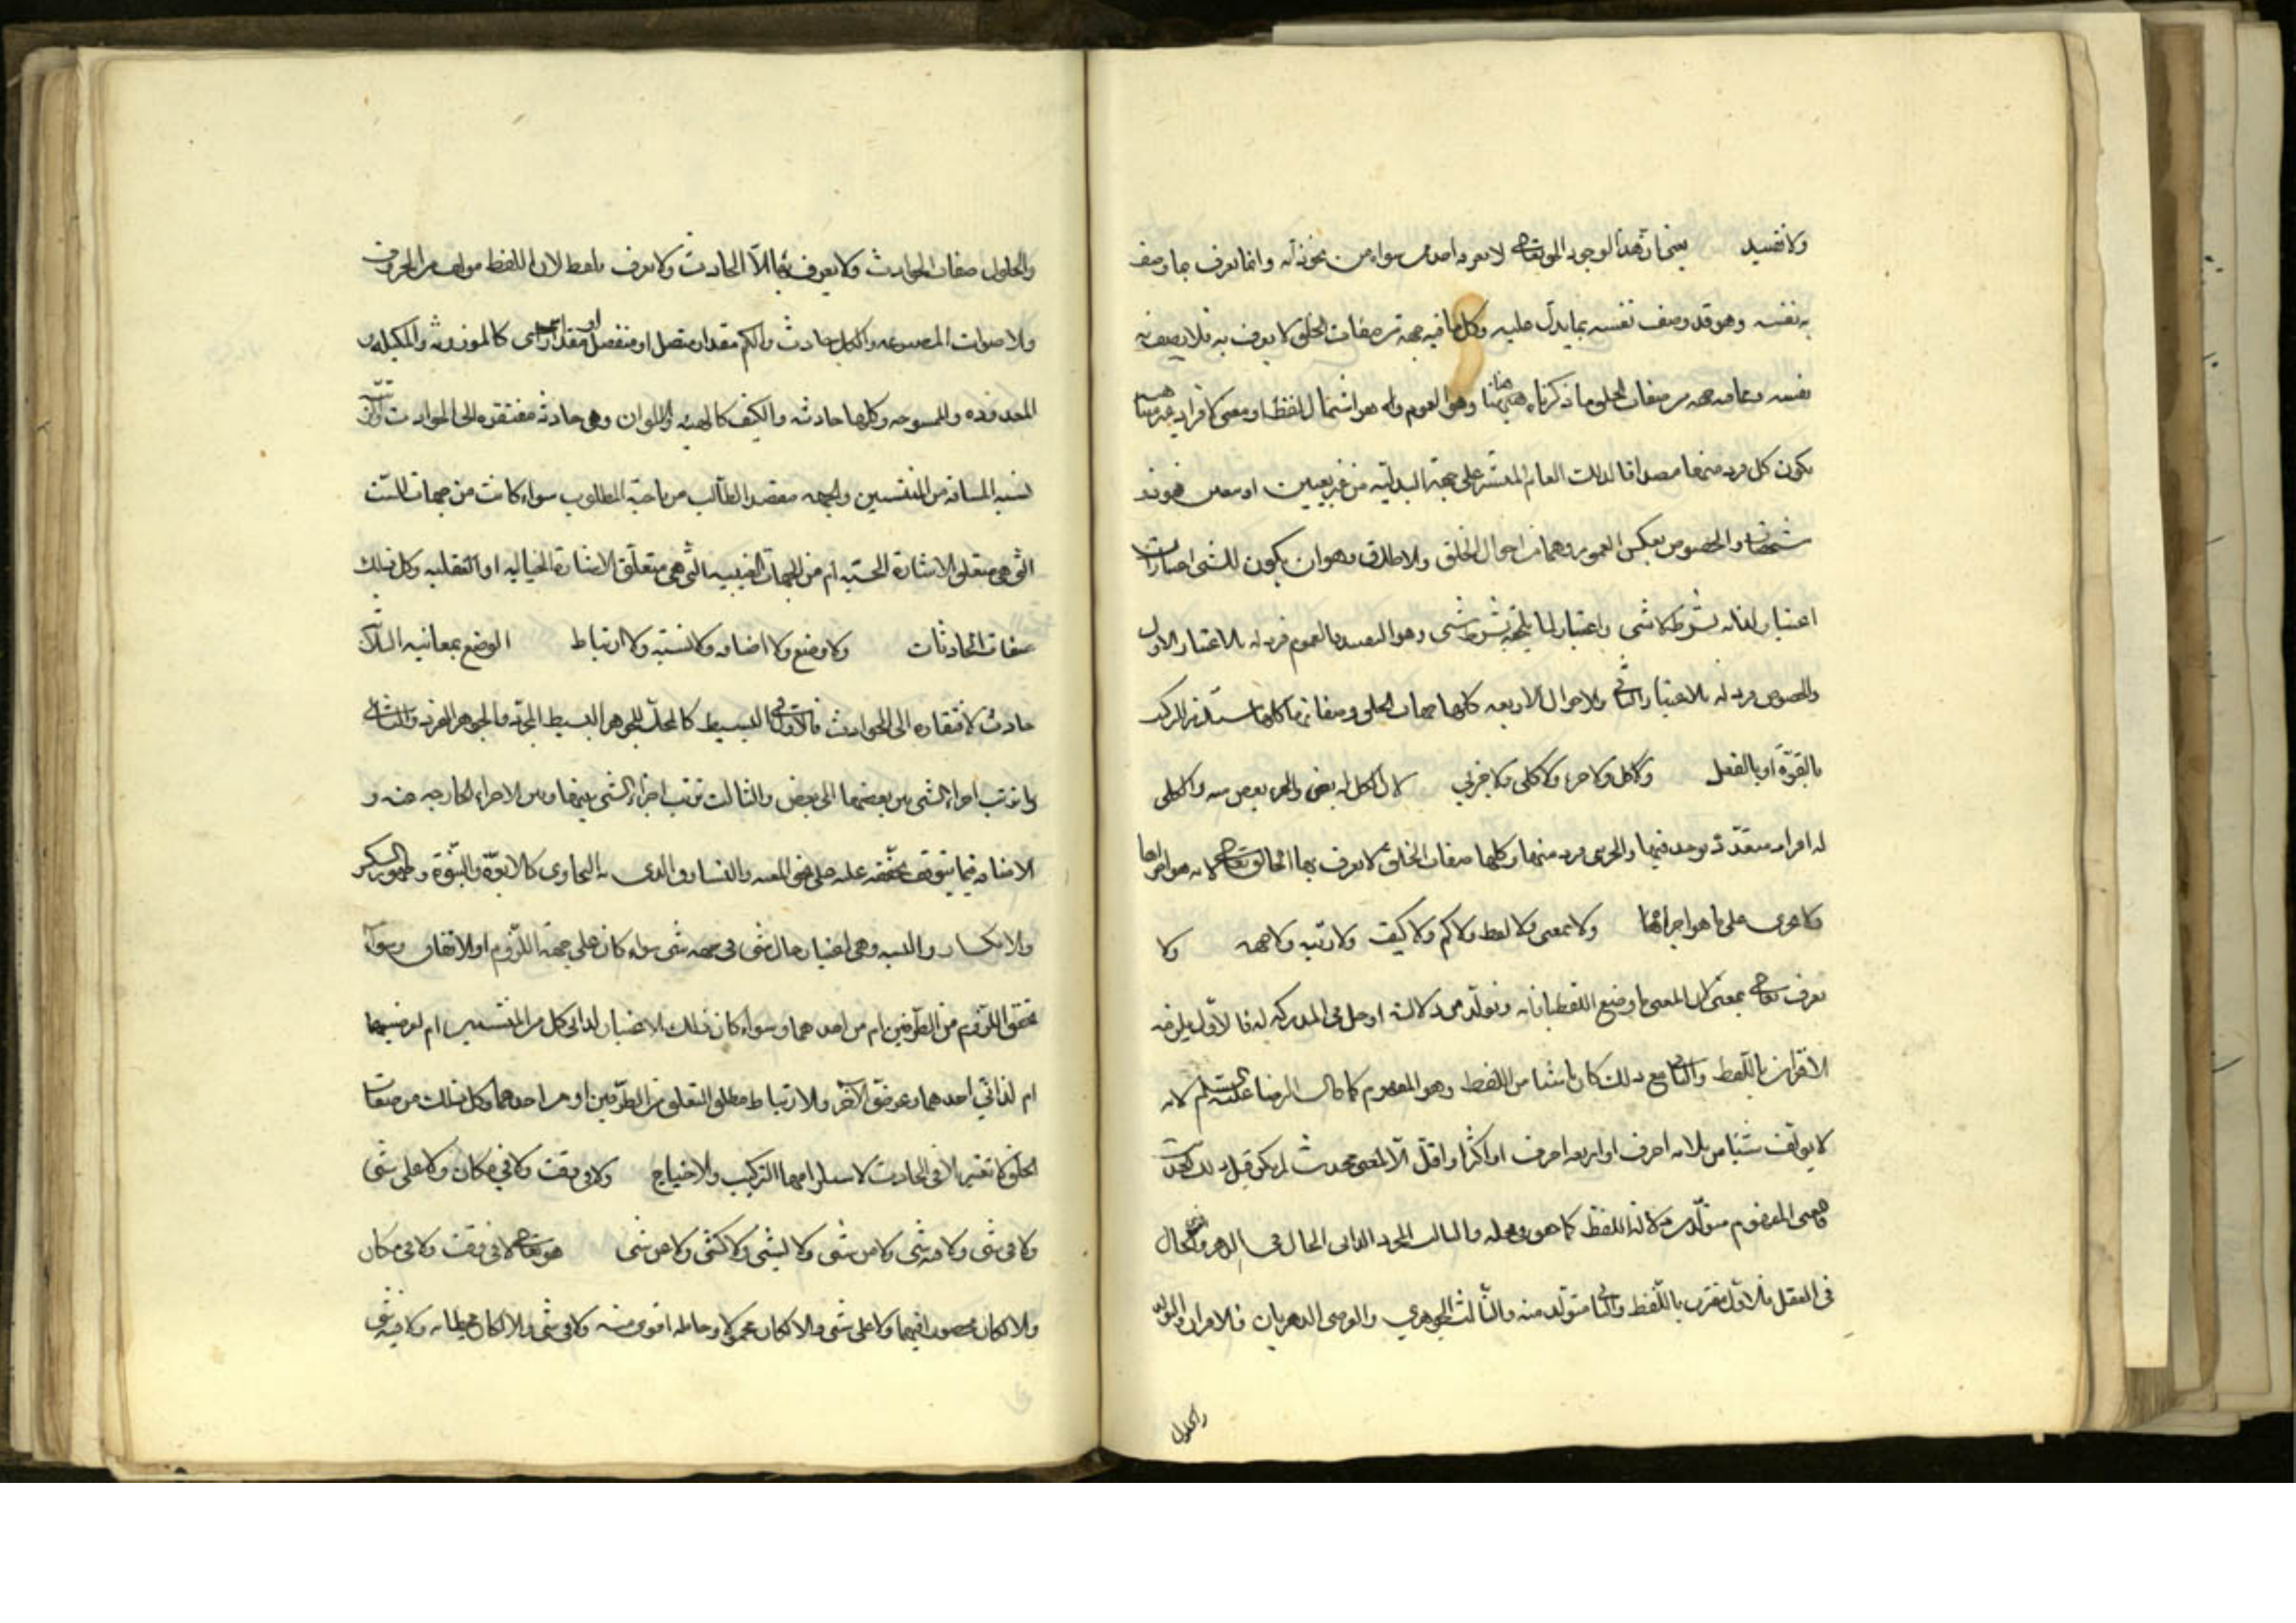 ولا تقييد يعني ان هذا الوجود الحق تعالى لا يعرفه احد من سواه من نحو ذاته وانما يعرف بما وصف
به نفسه وهو قد وصف نفسه بما يدل عليه وكل ما فيه جهة من صفات الخلق لا يعرف به فلا يصف به
نفسه ومما فيه جهة من صفات الخلق ما ذكرناه هيهنا وهو العموم وهو اشتمال لفظ او معنى لافراد غير
يكون كل فرد منها مصداقا لذلك العام المنتشر على جهة البدلية من غير تعيين او معين فهو
والخصوص بعكس العموم وهما من احوال الخلق والاطلاق وهو ان يكون للشيء اعتباران
اعتبار لذاته بشرط لا شيء واعتبار لما يلحقه بشرط شيء وهو التقييد فالعموم فرد له بالاعتبار الاول
والخصوص فرد له بالاعتبار الثاني والاحوال الاربعة كلها جهات الخلق وصفاتهم كلها تستلزم التركيب
بالقوة او بالفعل ولا كل ولا جزء ولا كلي ولا جزئي لان الكل له بعض والجزء بعض منه والكلي
له افراد متعددة يوجد فيها والجزئي فرد منها وكلها صفات الخلق لا يعرف بها الخالق تعالى لانه هو اجراها
ولا يجري عليه ما هو اجراها ولا بمعنى ولا لفظ ولا كم ولا كيف ولا رتبة ولا جهة ولا
يعرف تعالى بمعنى لان المعنى ما وضع اللفظ بازائه وتولد من دلالته او حل في المدركة له فالاول يلزمه
الاقتران باللفظ والثاني مع ذلك كان ناشئا من اللفظ وهو المفهوم كما قال الرضا عليه السلم لانه
لا يؤلف شيئا من ثلاثة احرف او اربعة احرف او اكثر او اقل الا لمعنى محدث لم يكن قبل ذلك
فمعنى المفهوم متولد من دلالة اللفظ كما هو في محله والثالث المجرد الذاتي الحال في الدهر والحال
في العقل فالاول مقترن باللفظ والثاني متولد منه والثالث الجوهري والعرضي الدهريان فالاقتران والتولد
والحلول
والحلول صفات الحوادث ولا يعرف بها الا الحادث ولا يعرف بلفظ لان اللفظ مؤلف من الحروف
والاصوات المصنوعة والكل حادث والكم مقدار متصل او منفصل او مقداري كالموزونة والمكيلة و
المعدودة والممسوحة وكلها حادثة والكيف كالهيئة والالوان وهي حادثة مفتقرة الى الحوادث
نسبة المسافة من المنتسبين والجهة مقصد الطالب من ناحية المطلوب سواء كانت من جهات الست
التي هي متعلق الاشارة الحسية ام من الجهات الغيبية التي هي متعلق الاشارة الخيالية او العقلية وكل ذلك
صفات الحادثات ولا وضع ولا اضافة ولا نسبة ولا ارتباط الوضع بمعانيه الثلاثة
حادث لافتقاره الى الحوادث فالاول البسيط كالمحل للجوهر البسيط المجرد فالجوهر الفرد والثاني
ما ترتب اجزاء الشيء بين بعضها الى بعض والثالث ترتب اجزاء الشيء بينها وبين الاجزاء الخارجة عنه و
الاضافة فيما يتوقف تحققه عليه والتساوق الذي به التحاوي كالابوة والبنوة وظهور الكسر
والانكسار والنسبة وهي اعتبار حال شيء في جهة شيء سواء كان على جهة اللزوم او الاتفاق وسواء
تحقق اللزوم من الطرفين ام من احدهما وسواء كان ذلك الاعتبار لذاتي كل من المنتسبين ام لعرضيهما
ام لذاتي احدهما وعرضي الآخر والارتباط مطلق التعلق من الطرفين او من احدهما وكل ذلك من صفات
الخلق لا تعتبر الا في الحادث لاستلزامها التركيب والاحتياج ولا في وقت ولا في مكان ولا على شيء
ولا في شيء ولا فيه شيء ولا من شيء ولا لشيء ولا كشيء ولا عن شيء هو تعالى لا في وقت ولا في مكان
والا لكان محصورا فيهما ولا على شيء والا لكان محمولا وحامله اقوى منه ولا في شيء والا لكان محيطا به ولا فيه شيء